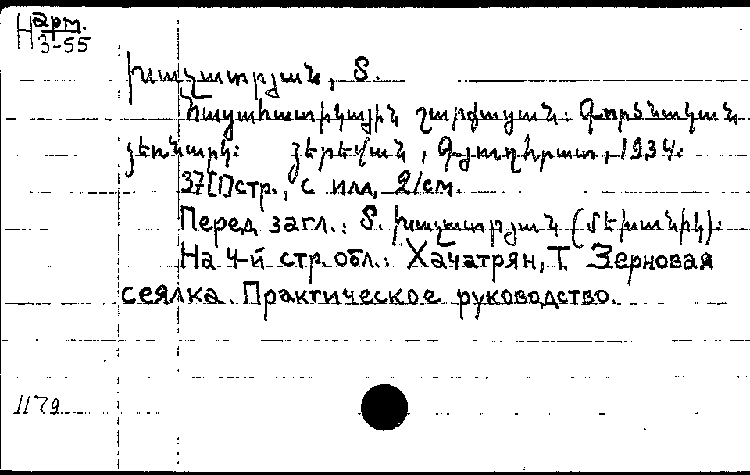 Hарм.
3-55
Խաչատրյան, Տ.
Հացահատիկային շարքացան: Գործնական
ձեռնարկ: Յերեվան, Գյուղհրատ, 1934.
37[1]стр., с илл, 21см.
Перед загл.: Տ. Խաչատրյան (մեխանիկ):
На 4-й стр. обл.: Хачатрян, Т. Зерновая
сеялка. Практическое руководство.
1179